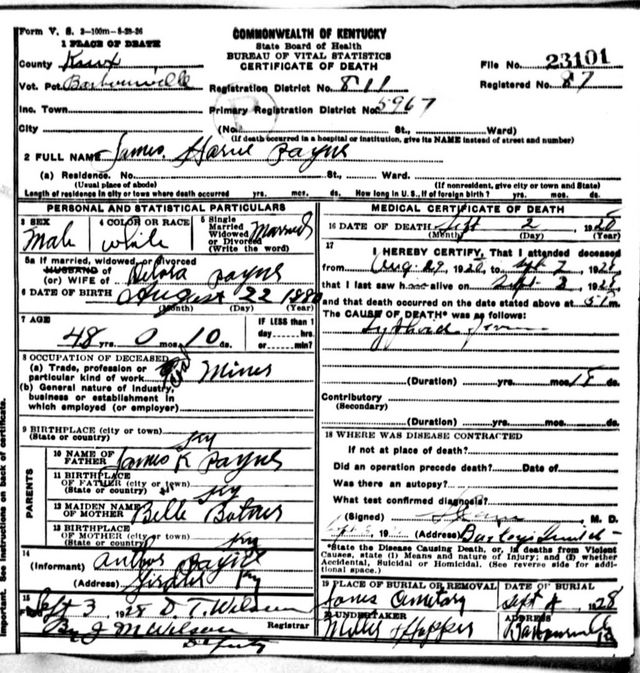 Form V. S. 2-100m-6-28-26
COMMONWEALTH OF KENTUCKY
State Board of Health
BUREAU OF VITAL STATISTICS
CERTIFICATE OF DEATH
1 PLACE OF DEATH
County Knox
File No. 23101
Vot. Pct. Barbourville
Registration District No. 811
Registered No. 87
Inc. Town
Primary Registration District No. 5967
City (No. St., Ward)
(If death occurred in a hospital or institution, give its NAME instead of street and number)
2 FULL NAME James Payne
(a) Residence. No. St., Ward.
(Usual place of abode) (If nonresident, give city or town and State)
Length of residence in city or town where death occurred yrs. mos. ds. How long in U. S., if of foreign birth? yrs. mos. ds.
PERSONAL AND STATISTICAL PARTICULARS
3 SEX Male
4 COLOR OR RACE white
5 Single Married Widowed or Divorced (Write the word) Married
5a If married, widowed, or divorced
HUSBAND of
(or) WIFE of Payne
6 DATE OF BIRTH August 22 1880
(Month) (Day) (Year)
7 AGE 48 yrs. 0 mos. 10 ds.
IF LESS than 1 day----hrs. or----min?
8 OCCUPATION OF DECEASED
(a) Trade, profession or particular kind of work Mines
(b) General nature of industry, business or establishment in which employed (or employer)
9 BIRTHPLACE (city or town)
(State or country) Ky
PARENTS
10 NAME OF FATHER James K Payne
11 BIRTHPLACE OF FATHER (city or town)
(State or country) Ky
12 MAIDEN NAME OF MOTHER Belle
13 BIRTHPLACE OF MOTHER (city or town)
(State or country) Ky
14
(Informant) Payne
(Address) Girdler Ky
15
Sept 3, 1928 D. T. Wilson
Registrar
By J M Wilson
Deputy
MEDICAL CERTIFICATE OF DEATH
16 DATE OF DEATH Sept 2 1928
(Month) (Day) (Year)
17
I HEREBY CERTIFY, That I attended deceased
from Aug 29 1928, to Sept 2, 1928
that I last saw h alive on Sept 2, 1928
and that death occurred on the date stated above at 5 P m.
The CAUSE OF DEATH* was as follows:
Typhoid
(Duration) yrs. mos. 18 ds.
Contributory
(Secondary)
(Duration) yrs. mos. ds.
18 WHERE WAS DISEASE CONTRACTED
If not at place of death?
Did an operation precede death? Date of
Was there an autopsy?
What test confirmed diagnosis?
(Signed) M. D.
, 19 (Address)
*State the Disease Causing Death, or, in deaths from Violent Causes, state (1) Means and nature of Injury; and (2) whether Accidental, Suicidal or Homicidal. (See reverse side for additional space.)
19 PLACE OF BURIAL OR REMOVAL Jones Cemetary
DATE OF BURIAL Sept 1928
20 UNDERTAKER Hopper
ADDRESS Barbourville
important. See instructions on back of certificate.